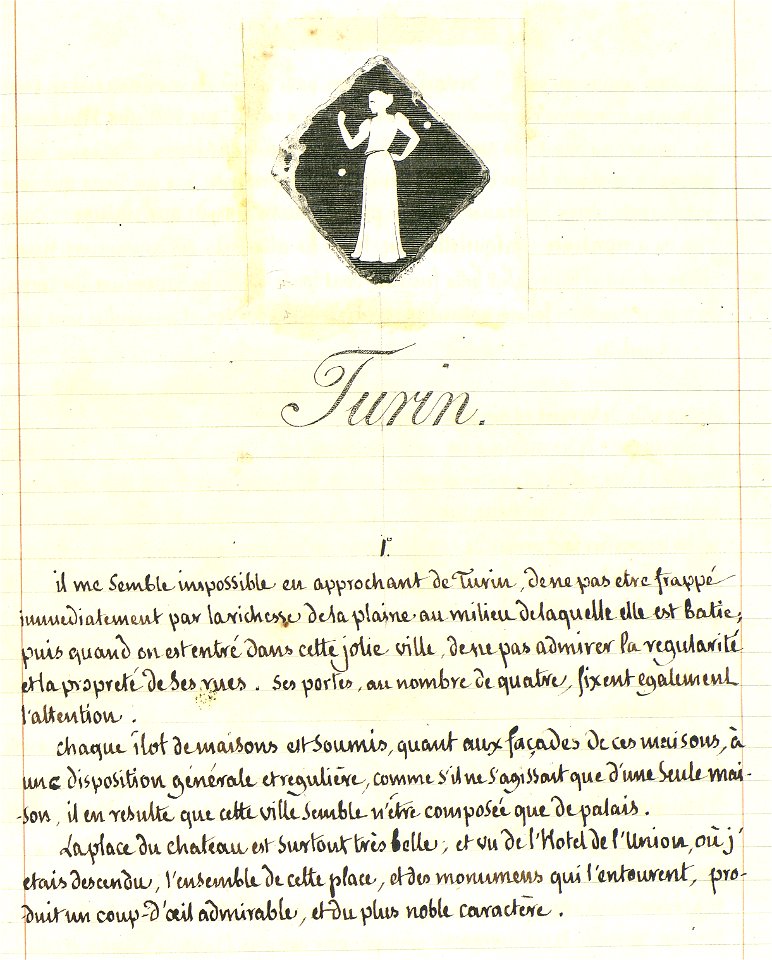 Turin.
1°.
il me semble impossible en approchant de Turin, de ne pas etre frappé
immediatement par la richesse de la plaine au milieu de laquelle elle est batie,
puis quand on est entré dans cette jolie ville, de ne pas admirer la regularité
et la propreté de ses rues. Ses portes, au nombre de quatre, fixent egalement
l'attention.
chaque îlot de maisons est soumis, quant aux façades de ces maisons, à
une disposition générale et regulière, comme s'il ne s'agissait que d'une seule mai-
-son, il en resulte que cette ville semble n'être composée que de palais.
La place du chateau est surtout très belle; et vu de l'Hotel de l'Union, où j'
etais descendu, l'ensemble de cette place, et des monumens qui l'entourent, pro-
duit un coup-d'œil admirable, et du plus noble caractère.